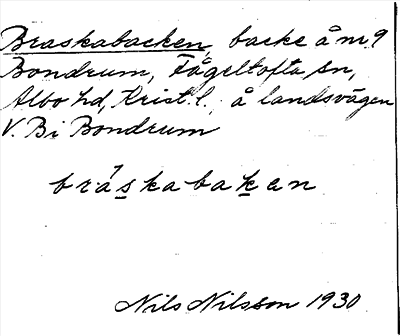 Braskabacken, backe å nr 9
Bondrum, Fågeltofta sn,
Albo hd, Krist. l., å landsvägen
V. Bi Bondrum
bráskabaken
Nils Nilsson 1930